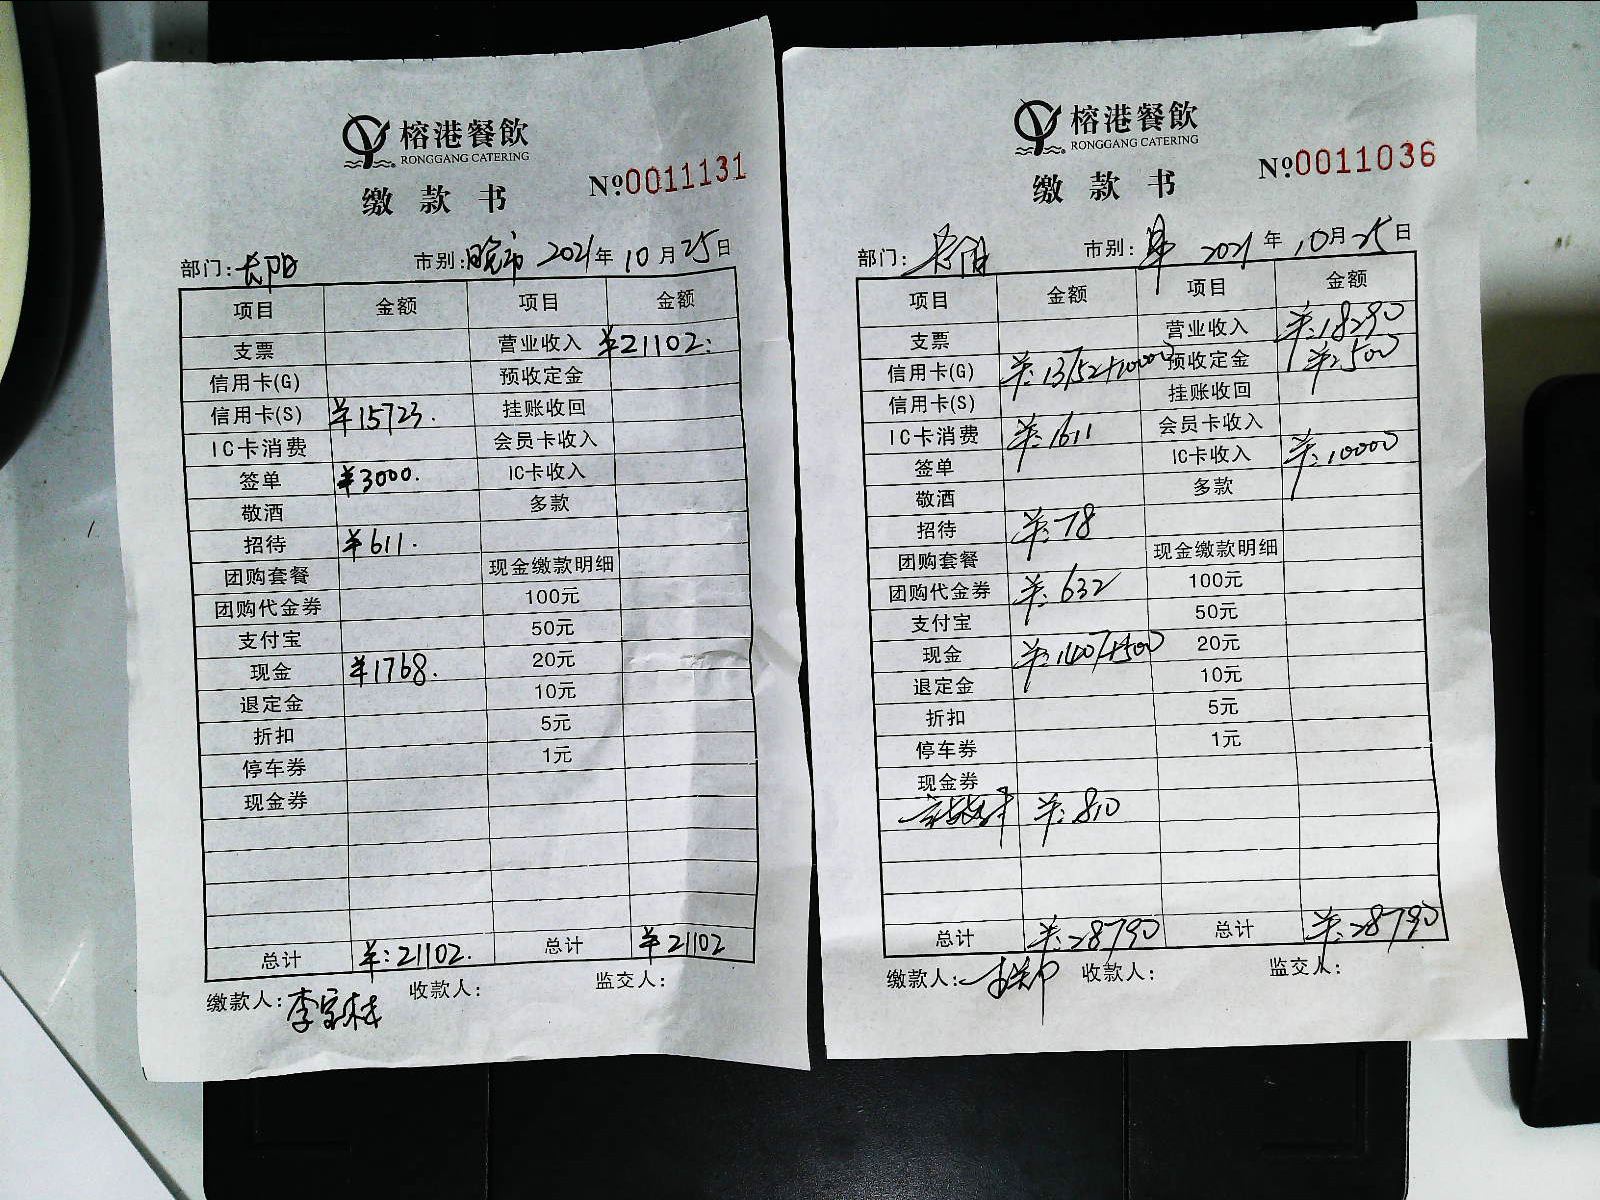 榕港餐飲
RONGGANG CATERING
缴款书
№0011131
部门:长阳 市别:晚市 2021年10月25日
项目 金额 项目 金额
支票 营业收入 ¥21102.
信用卡(G) 预收定金
信用卡(S) ¥15723. 挂账收回
IC卡消费 会员卡收入
签单 ¥3000. IC卡收入
敬酒 多款
招待 ¥611.
团购套餐 现金缴款明细
团购代金券 100元
支付宝 50元
现金 ¥1768. 20元
退定金 10元
折扣 5元
停车券 1元
现金券
总计 ¥:21102. 总计 ¥21102
缴款人: 收款人: 监交人:
榕港餐飲
RONGGANG CATERING
缴款书
№0011036
部门:长阳 市别:早 2021年10月25日
项目 金额 项目 金额
支票 营业收入 ¥:18290
信用卡(G) ¥:13752+10000 预收定金 ¥:500
信用卡(S) 挂账收回
IC卡消费 ¥:1611 会员卡收入
签单 IC卡收入 ¥:10000
敬酒 多款
招待 ¥:78
团购套餐 现金缴款明细
团购代金券 ¥:632 100元
支付宝 50元
现金 ¥:1407+500 20元
退定金 10元
折扣 5元
停车券 1元
现金券
¥:810
总计 ¥:28790 总计 ¥:28790
缴款人: 收款人: 监交人: